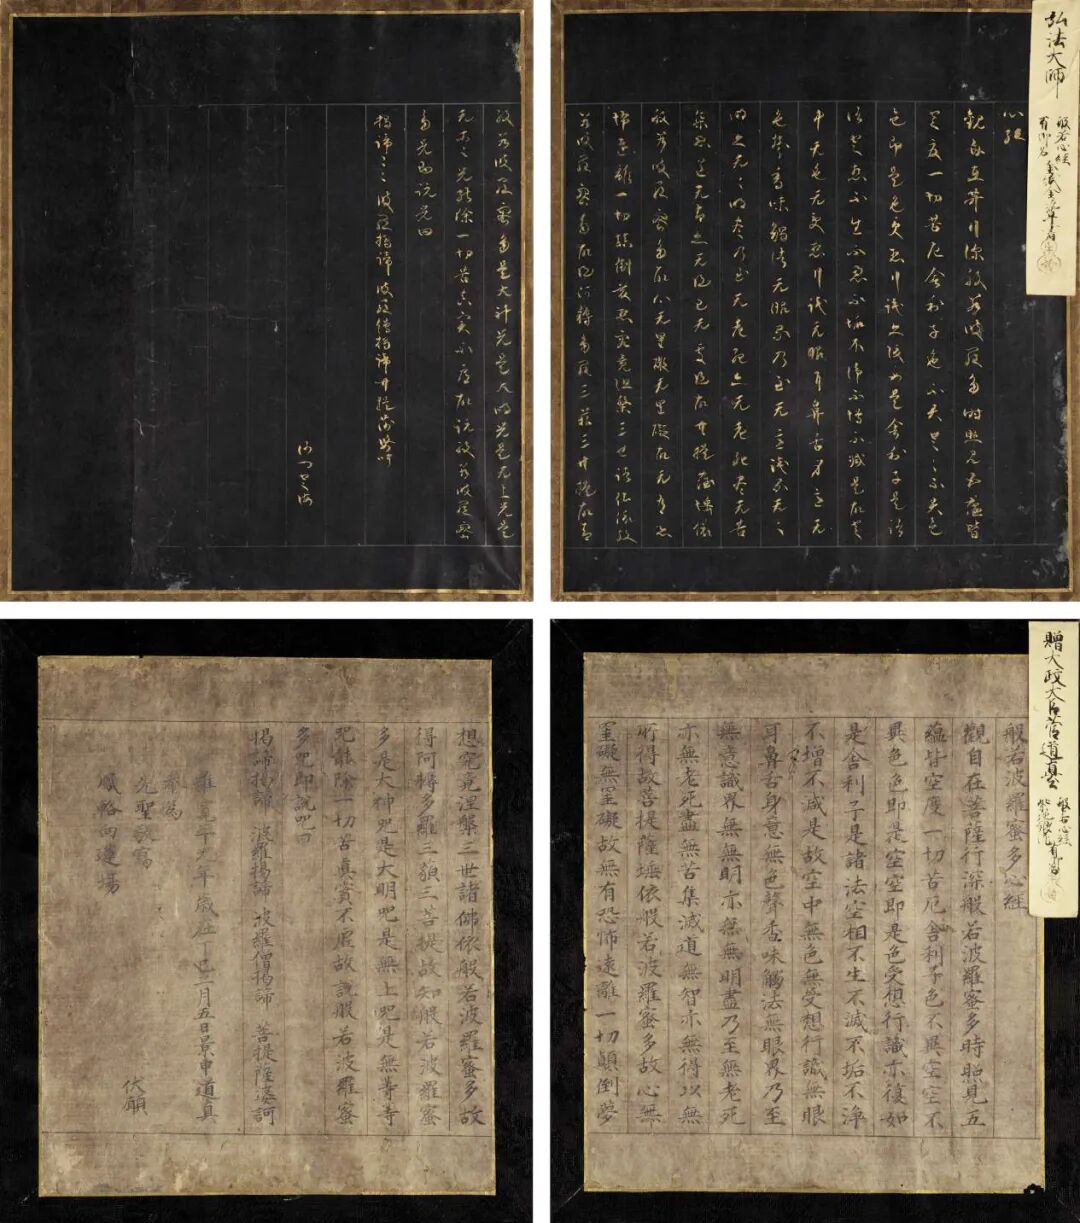 弘法大師
般若心經
有御名
心経
観自在菩薩行深般若波羅多時照見五蘊皆
空度一切苦厄舍利子色不異空々不異色
色即是色受想行識亦復如是舍利子是諸
法空想不生不滅不垢不浄不増不減是故空
中无色无受想行識无眼耳鼻舌身意无
色声香味觸法无眼界乃至无意識界无々
明亦无々明尽乃至无老死亦无老死尽无苦
集滅道无智亦无得已无受得故菩提薩埵依
般若波羅蜜多故心无罣礙无罣礙故无有恐
怖遠離一切顛倒夢想究竟涅槃三世諸仏依般
若波羅蜜多故得阿耨多羅三藐三菩提故知
般若波羅蜜多是大神咒是大明咒是无上咒是
无等々咒能除一切苦真実不虚故説般若波羅蜜
多咒即説咒曰
揭諦々々波羅揭諦波羅僧揭諦菩提薩婆訶
沙門空海
贈大政大臣菅道真公
般若心經
般若波羅蜜多心經
觀自在菩薩行深般若波羅蜜多時照見五
蘊皆空度一切苦厄舍利子色不異空空不
異色色即是空空即是色受想行識亦復如
是舍利子是諸法空相不生不滅不垢不淨
不增不減是故空中無色無受想行識無眼
耳鼻舌身意無色聲香味觸法無眼界乃至
無意識界無無明亦無無明盡乃至無老死
亦無老死盡無苦集滅道無智亦無得以無
所得故菩提薩埵依般若波羅蜜多故心無
罣礙無罣礙故無有恐怖遠離一切顛倒夢
想究竟涅槃三世諸佛依般若波羅蜜多故
得阿耨多羅三藐三菩提故知般若波羅蜜
多是大神咒是大明咒是無上咒是無等等
咒能除一切苦真實不虛故說般若波羅蜜
多咒即說咒曰
揭諦揭諦 波羅揭諦 波羅僧揭諦 菩提薩婆訶
維寛平年歲在丁巳二月五日景申道真
奉為
先聖敬寫 伏願
向道場